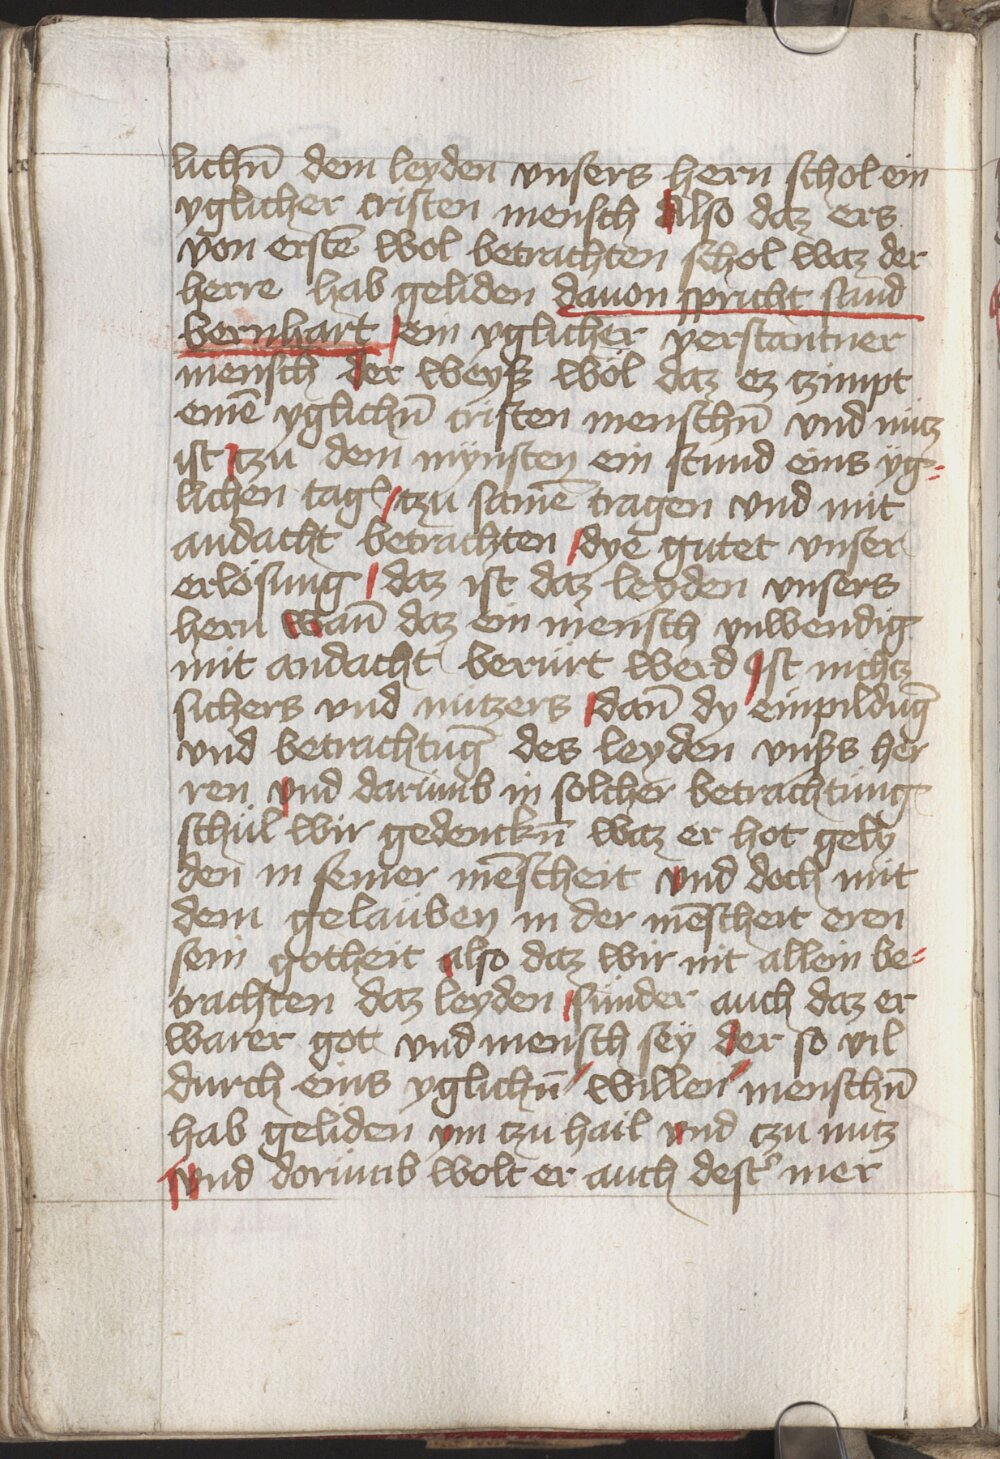 lichn̄ dem leyden vnsers hern schol ein
yglicher cristen mensch Also daz ers
von erstē wol betrachten schol waz der
herre hab geliden dauon spricht sand
bernhart / ein yglicher verstantner
mensch der weysz wol daz ez czimpt
einē yglichn̄ cristen menschn̄ vnd nücz
ist / czu dem mynsten ein stund eins yg=
lichen tags / czu samē tragen vnd mit
andacht betrachten / dye gutet vnser
erlösung / daz ist daz leyden vnsers
hern wan̄ daz ein mensch ynwendig
mit andacht berürt werd / ist nichcz
sichers vnd nüczers / dan̄ dy einpildūg
vnd betrachtūg des leyden vnszs her
ren vnd darümb in solcher betrachtüng
schüll wir gedenckn̄ waz er hot gely
den in seiner mēscheit vnd doch mit
dem gelauben in der mēscheit eren
sein gotheit also daz wir nit allein be=
trachten daz leyden / sünder auch daz er
warer got vnd mensch sey der so vil
durch eins yglichn̄ / willen / menschn̄
hab geliden ym czu hail vnd czu nücz
vnd dorümb wolt er auch dest mer